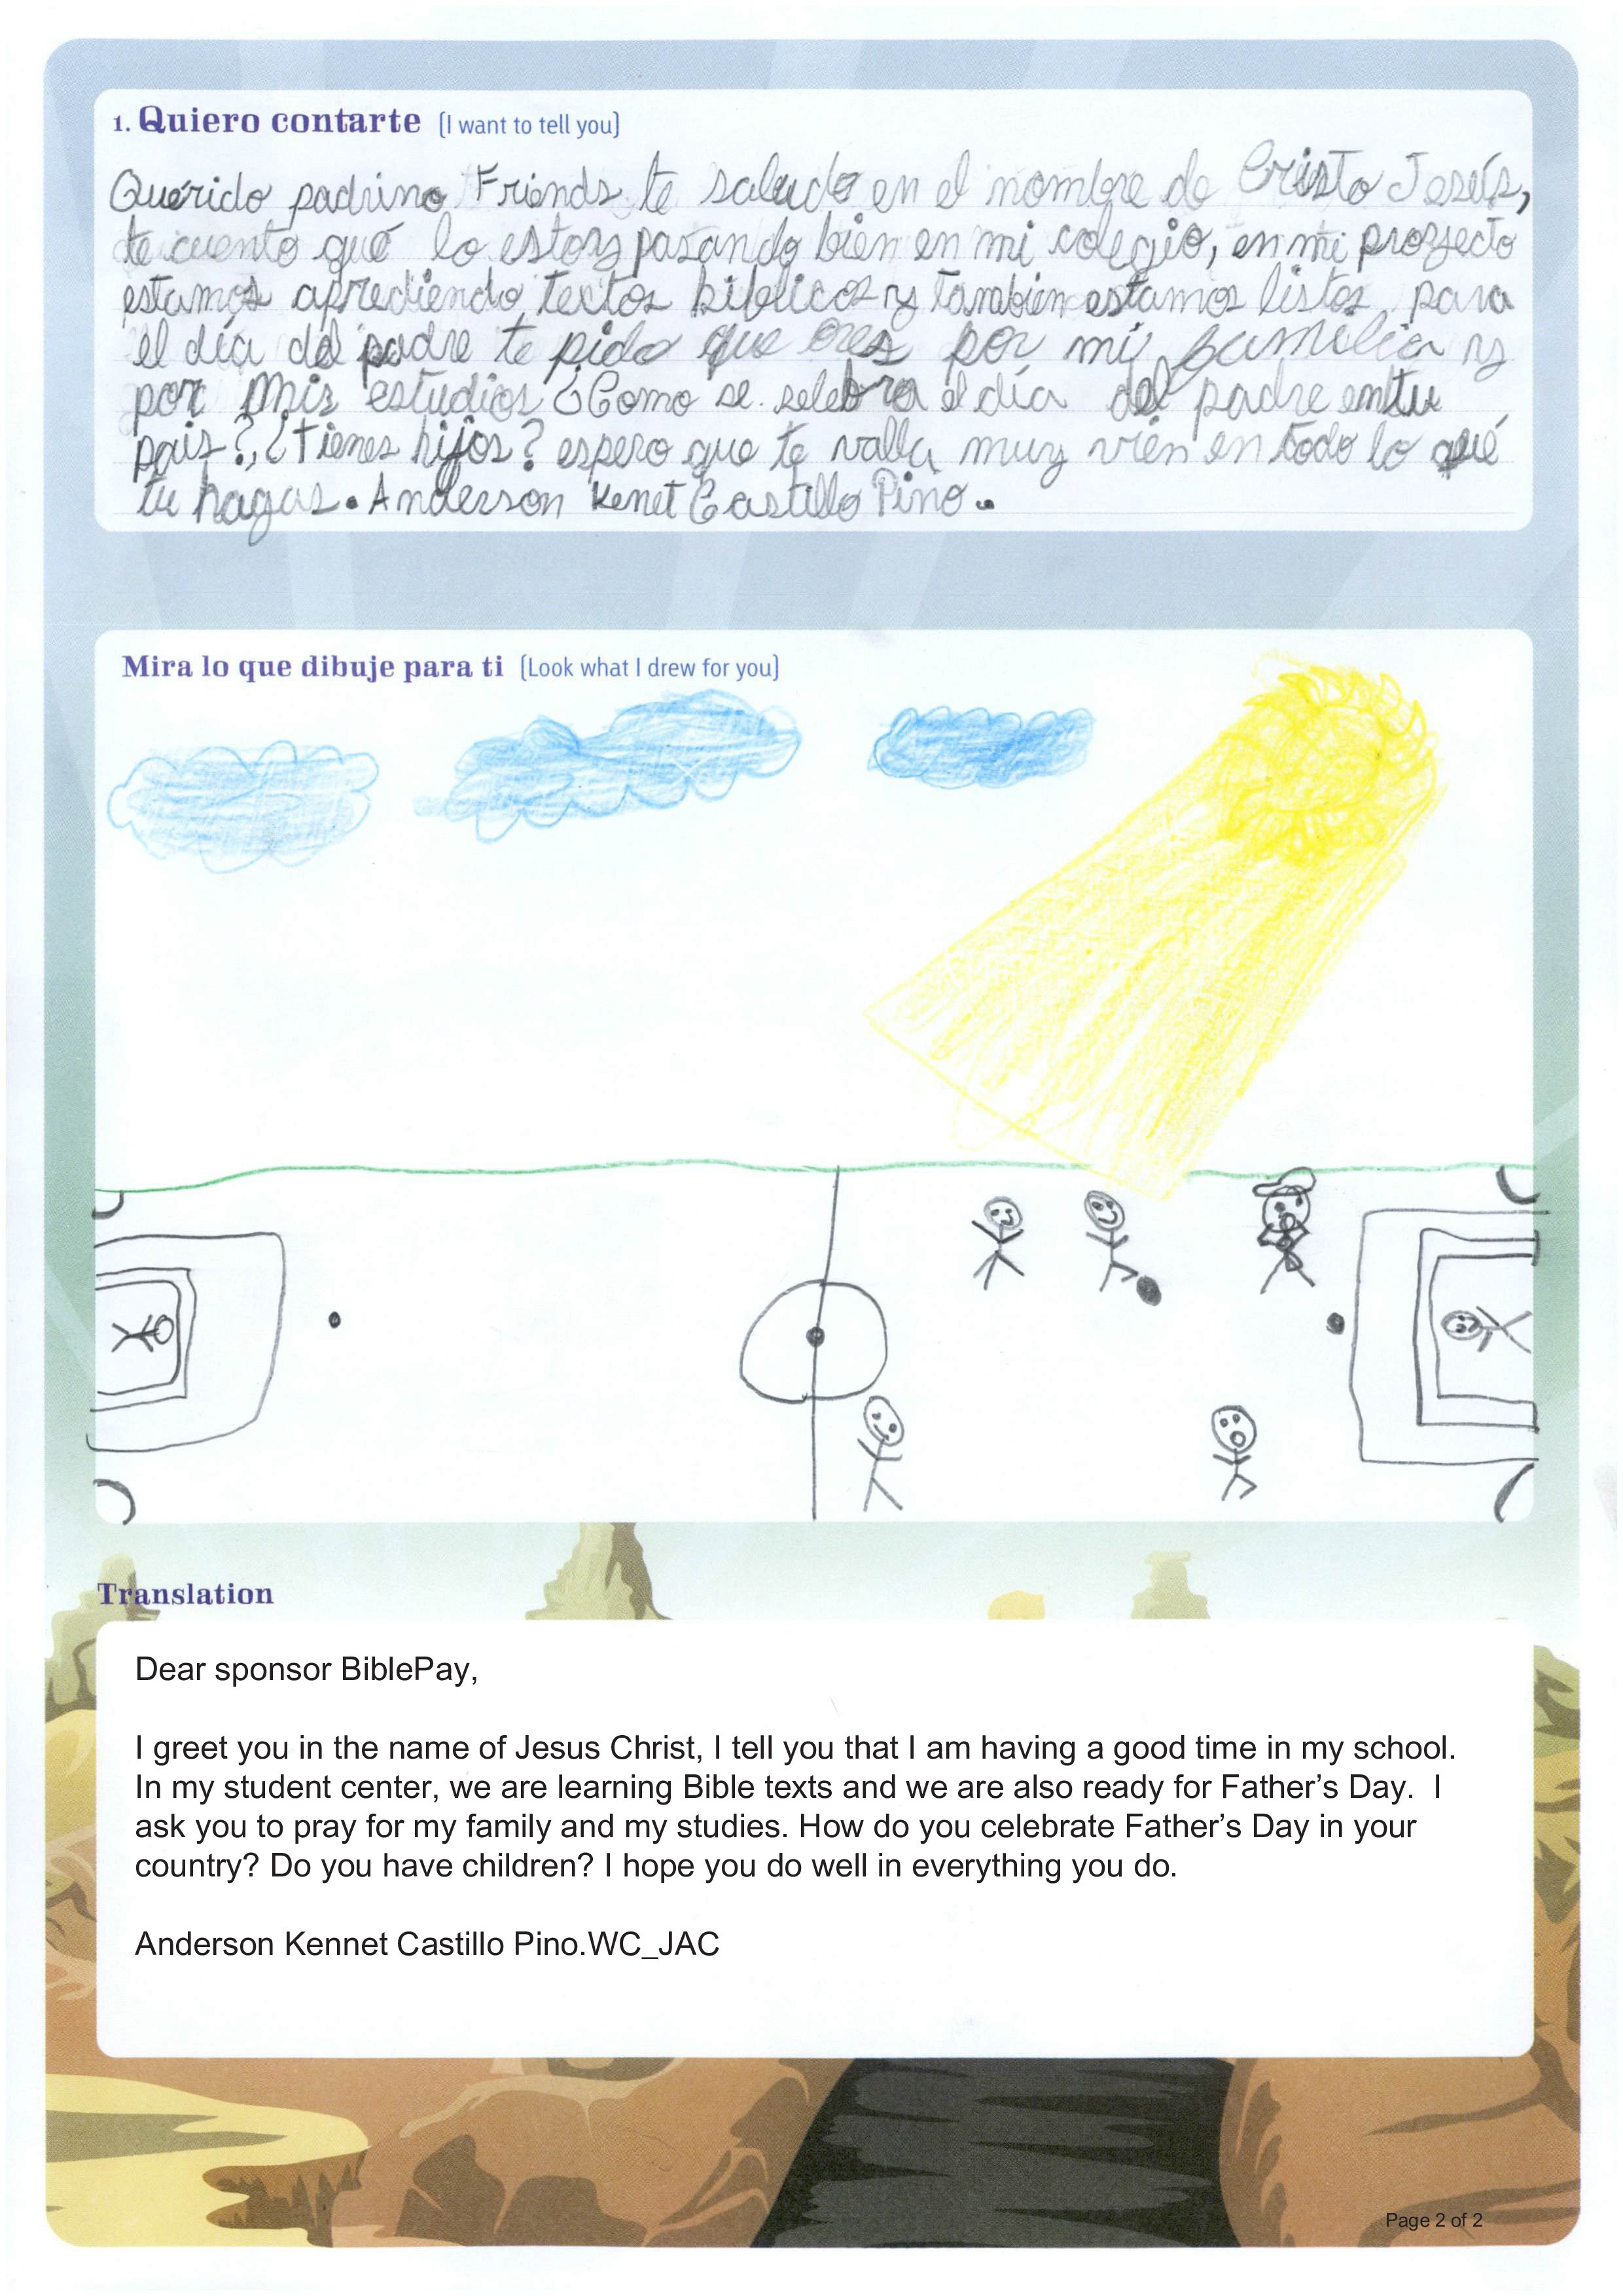 1. Quiero contarte (I want to tell you)
Querido padrino Friends te saludo en el nombre de Cristo Jesús,
te cuento qué lo estoy pasando bien en mi colegio, en mi proyecto
estamos aprediendo textos biblicos y tambien estamos listos para
el día del padre te pido que ores por mi familia y
por mis estudios ¿Como se selebra el día del padre en tu
pais?, ¿Tienes hijos? espero que te valla muy vien en todo lo qué
tu hagas. Anderson Kenet Castillo Pino.
Mira lo que dibuje para ti (Look what I drew for you)
Translation
Dear sponsor BiblePay,
I greet you in the name of Jesus Christ, I tell you that I am having a good time in my school.
In my student center, we are learning Bible texts and we are also ready for Father’s Day. I
ask you to pray for my family and my studies. How do you celebrate Father’s Day in your
country? Do you have children? I hope you do well in everything you do.
Anderson Kennet Castillo Pino.WC_JAC
Page 2 of 2